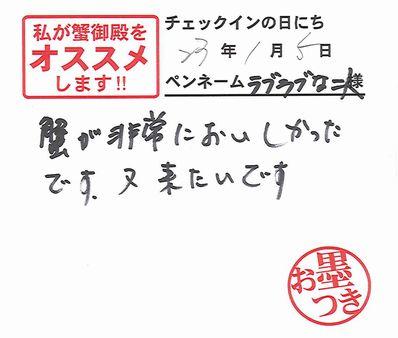 私が蟹御殿を
オススメ
します!!
チェックインの日にち
23年1月5日
ペンネームラブラブな二人様
蟹が非常においしかった
です、又来たいです
お墨つき